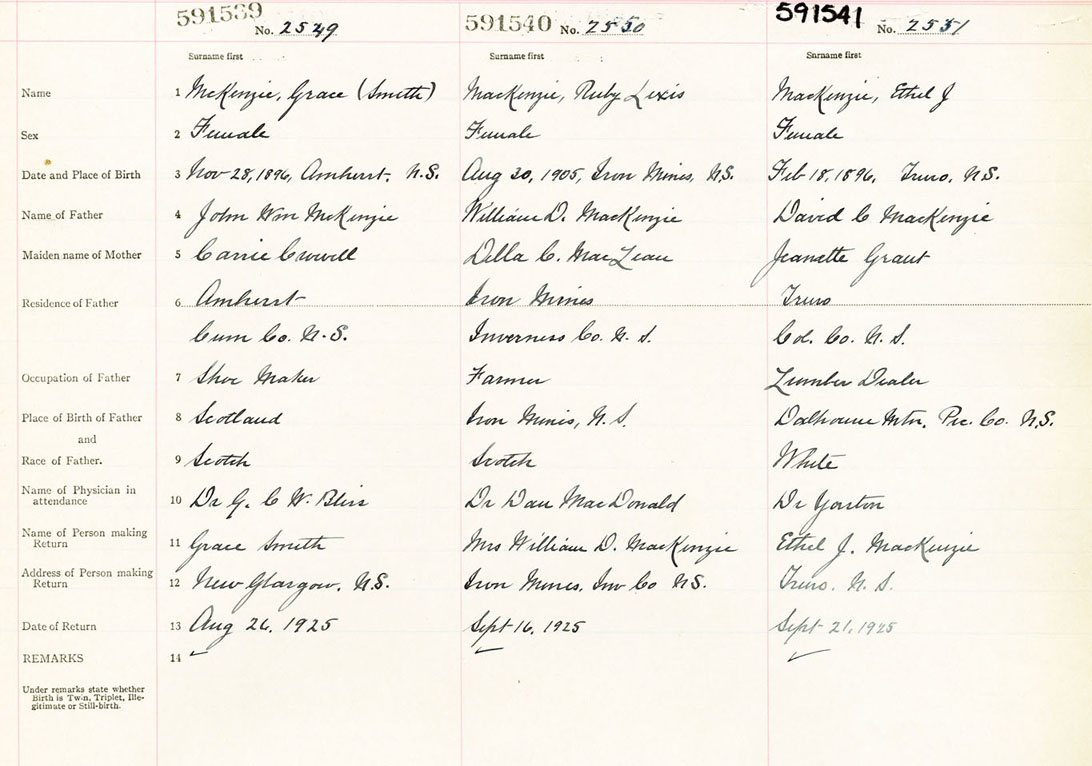 591539 No. 2549 591540 No. 2550 591541 No. 2551
Surname first Surname first Surname first
Name 1 McKenzie, Grace (Smith) MacKenzie, Ruby Lexis MacKenzie, Ethel J
Sex 2 Female Female Female
Date and Place of Birth 3 Nov 28, 1896, Amherst, N.S. Aug 20, 1905, Iron Mines, N.S. Feb 18, 1896, Truro, N.S.
Name of Father 4 John Wm McKenzie William D. MacKenzie David C MacKenzie
Maiden name of Mother 5 Carrie Crowell Della C. MacLean Jeanette Grant
Residence of Father 6 Amherst Iron Mines Truro
Cum Co. N.S. Inverness Co. N. S. Col. Co. N. S.
Occupation of Father 7 Shoe Maker Farmer Lumber Dealer
Place of Birth of Father 8 Scotland Iron Mines, N. S. Dalhousie Mtn, Pic. Co. N.S.
and
Race of Father. 9 Scotch Scotch White
Name of Physician in
attendance 10 Dr G. C W. Bliss Dr Dan MacDonald Dr Yorston
Name of Person making
Return 11 Grace Smith Mrs William D. MacKenzie Ethel J. MacKenzie
Address of Person making
Return 12 New Glasgow, N.S. Iron Mines, Inv Co N.S. Truro, N. S.
Date of Return 13 Aug 26, 1925 Sept 16, 1925 Sept 21, 1925
REMARKS 14
Under remarks state whether
Birth is Twin, Triplet, Ille-
gitimate or Still-birth.